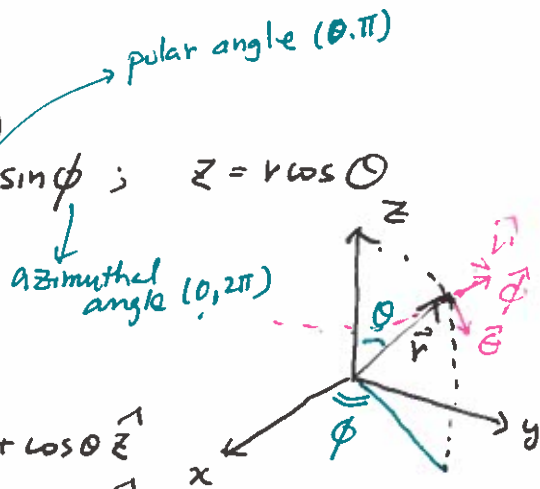 polar angle (θ.π)
sinϕ ; z = r cos θ
azimuthal
angle (0, 2π)
z
r̂
ϕ̂
θ̂
θ
r⃗
ϕ
y
x
+ cosθ ẑ